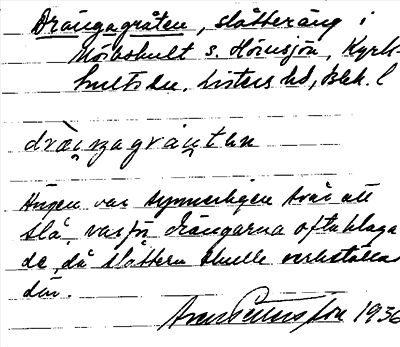 Drängagråten, slåtteräng i
Mörkhult s. Hörnsjön, Kyrk-
hults sn, Listers hd, Blek. l
Ängen var synnerligen svår att
slå, varför drängarna ofta klaga
de, då slåttern skulle verkställas
där.
1936